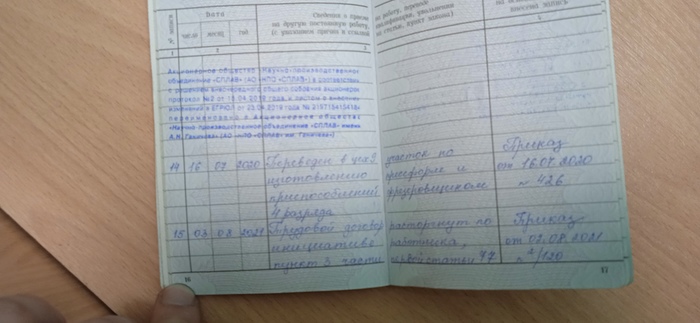 № записи
Дата
Сведения о приеме
на работу, переводе
на другую постоянную работу,
квалификации, увольнении
(с указанием причин и ссылкой
на статью, пункт закона)
число
месяц
год
1
2
3
Акционерное общество «Научно-производственное
объединение «СПЛАВ» (АО «НПО «СПЛАВ») в соответствии
с решением внеочередного общего собрания акционеров
протокол №2 от
и листом о внесении
изменений в ЕГРЮЛ от
переименовано в Акционерное общество
«Научно-производственное объединение «СПЛАВ» имени
А.Н. Ганичева» (АО «НПО «СПЛАВ» им. Ганичева»)
14 16 07 2020 Переведен в цех 9 участок по
изготовлению прессформ и
приспособлений фрезеровщиком
4 разряда
Приказ
от 16.07.2020
№ 426
15 03 08 2021 Трудовой договор расторгнут по
инициативе работника,
пункт 3 части первой статьи 77
Приказ
от 02.08.2021
№ /120